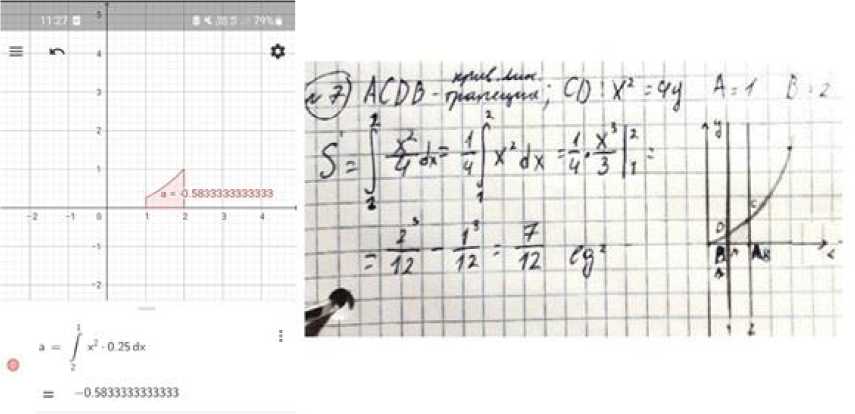 11:27 79%
5
4
3
2
1
a = -0.5833333333333
-2 -1 0 1 2 3 4
-1
-2
a = ∫₂¹ x² · 0.25 dx
= −0.5833333333333
№7) ACDB - крив. лин. трапеция; CD: x² = 4y A=1 B=2
S = ∫ x²/4 dx = 1/4 ∫₁² x² dx = 1/4 · x³/3 |₁² =
= 2³/12 - 1³/12 = 7/12 eg²
y
D C
x
1 2